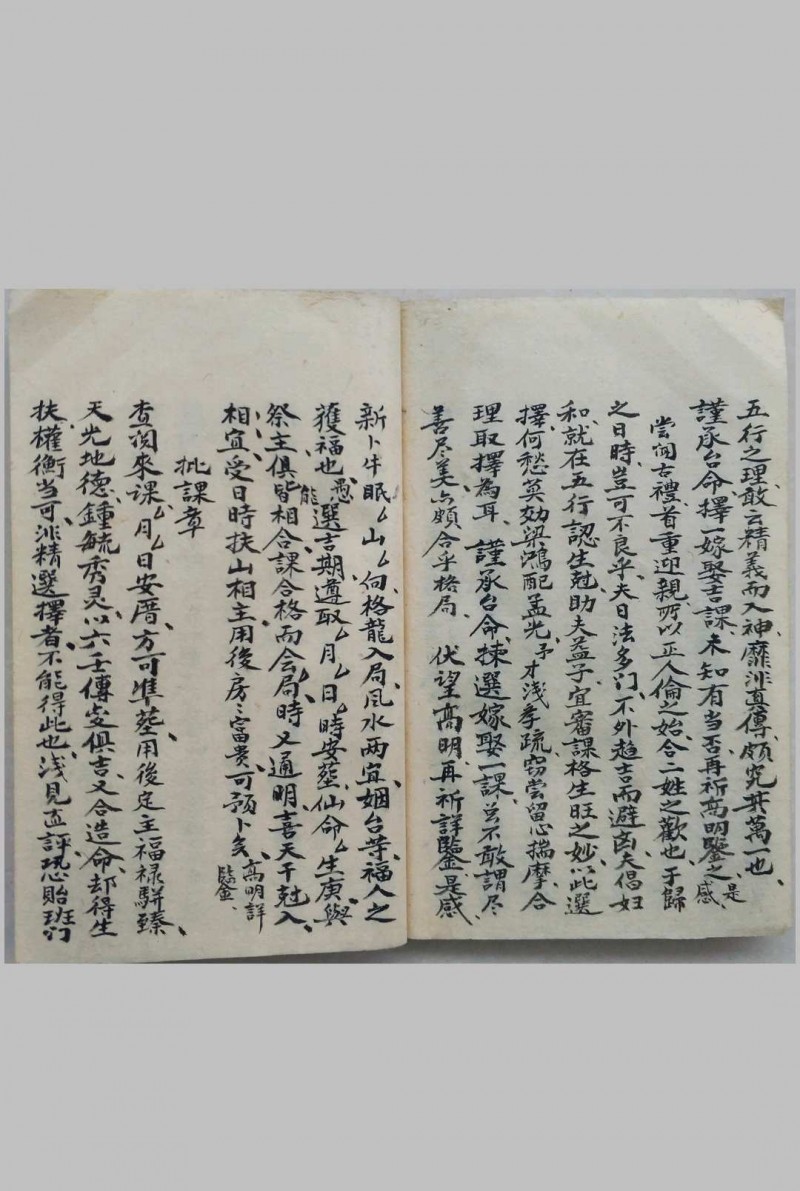 五行之理敢云精義而入神靡非直傳頗究其萬一也
謹承台命擇一嫁娶吉課未知有当否再祈高明鑒之是感
尝闻古禮首重迎親所以正人倫之始合二姓之歡也于歸
之日時豈可不良乎夫日法多门不外趋吉而避凶夫倡妇
和就在五行認生尅助夫益子宜審課格生旺之妙以此選
擇何愁莫効梁鴻配孟光予才淺孝疏窃尝留心揣摩合
理取擇為耳 謹承台命揀選嫁娶一課並不敢謂尽
善尽美亦頗合乎格局 伏望高明再祈詳鑒是感
新卜牛眠厶山厶向格龍入局風水两宜姻台等福人之
獲福也愚能選吉期遵取厶月厶日厶時安塟仙命厶生庚與
祭主俱皆相合課合格而会局時又通明喜天干尅入
相宜受日時扶山相主用後房〻富贵可预卜矣高明詳鑒
批課章
查阅來課厶月厶日安厝方可准塟用後定主福禄駢臻
天光地德鍾毓秀灵以六壬傳支俱吉又合造命却得生
扶權衡当可非精選擇者不能得此也浅見直評恐貽班门